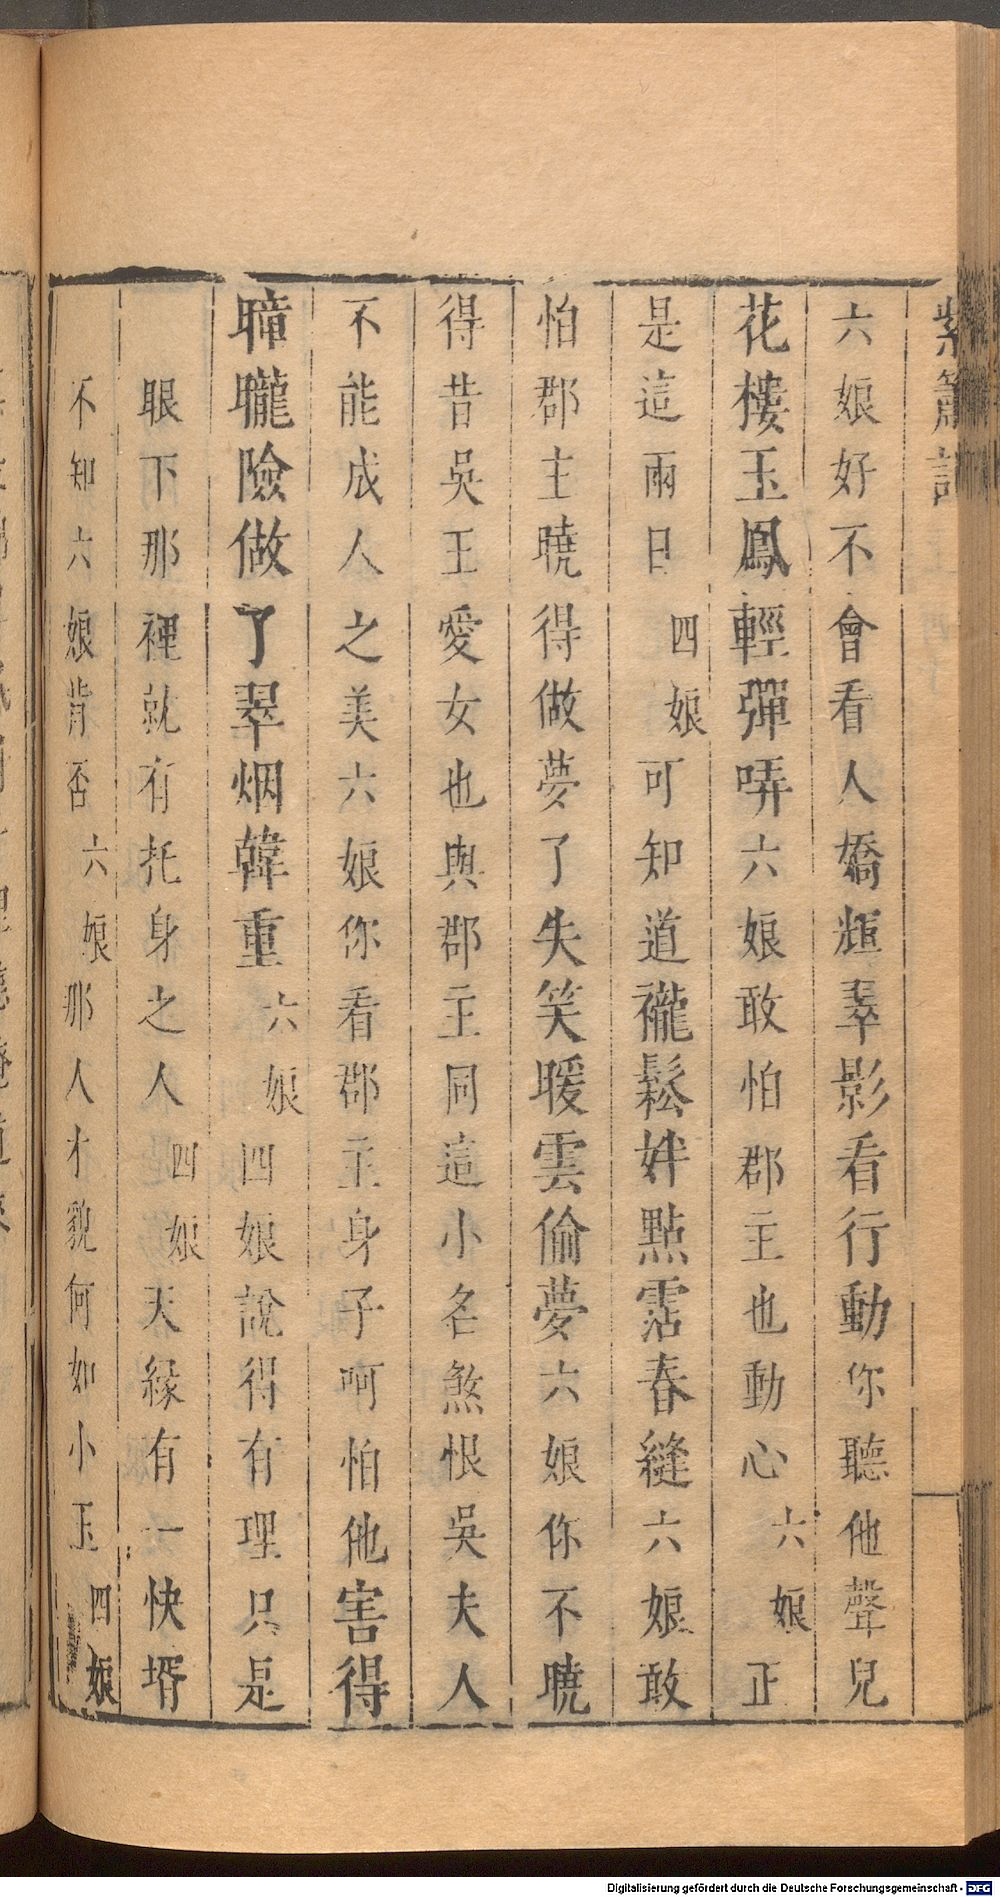 紫簫記
六娘好不會看人嬌輝翠影看行動你聽他聲兒
花樓玉鳳輕彈哢六娘敢怕郡主也動心六娘正
是這兩日四娘可知道襱鬆姅點霑春縫六娘敢
怕郡主曉得做夢了失笑暖雲偷夢六娘你不曉
得昔吳王愛女也與郡主同這小名煞恨吳夫人
不能成人之美六娘你看郡主身子呵怕他害得
朣朧險做了翠烟韓重六娘四娘說得有理只是
眼下那裡就有托身之人四娘天緣有一快壻
不知六娘肯否六娘那人才貌何如小玉四娘
Digitalisierung gefördert durch die Deutsche Forschungsgemeinschaft - DFG